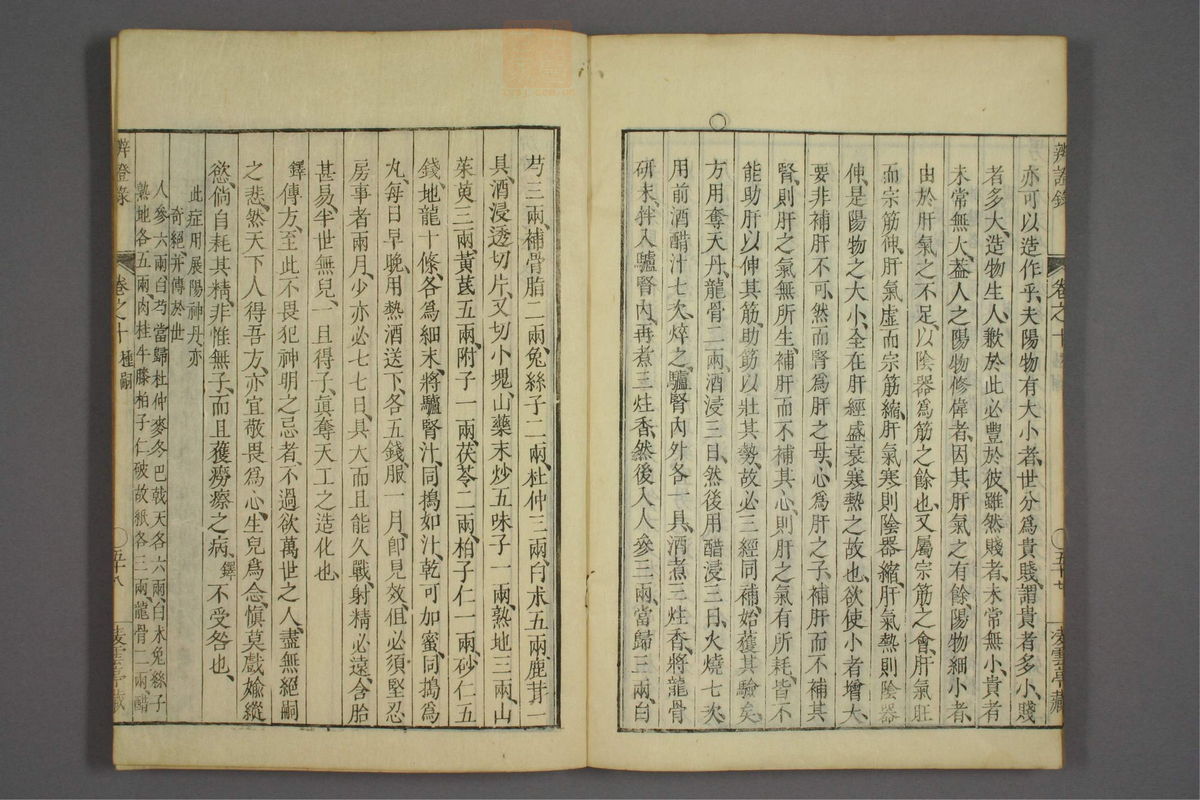 辨證錄 卷之十 五十七 凌雲亭藏
亦可以造作乎、夫陽物有大小者、世分為貴賤、謂貴者多小、賤
者多大、造物生人、歉於此必豐於彼、雖然賤者未常無小、貴者
未常無大、蓋人之陽物修偉者、因其肝氣之有餘、陽物細小者、
由於肝氣之不足、以陰器為筋之餘也、又屬宗筋之會、肝氣旺
而宗筋伸、肝氣虛而宗筋縮、肝氣寒則陰器縮、肝氣熱則陰器
伸、是陽物之大小、全在肝經盛衰寒熱之故也、欲使小者增大、
要非補肝不可、然而腎為肝之母、心為肝之子、補肝而不補其
腎、則肝之氣無所生、補肝而不補其心、則肝之氣有所耗、皆不
能助肝以伸其筋、助筋以壯其勢、故必三經同補、始獲其驗矣、
方用奪天丹、龍骨二兩、酒浸三日、然後用醋浸三日、火燒七次、
用前酒醋汁七次焠之、驢腎內外各一具、酒煮三炷香、將龍骨
研末、拌入驢腎內、再煮三炷香、然後入人參三兩、當歸三兩、白
芍三兩、補骨脂二兩、兔絲子二兩、杜仲三兩、白朮五兩、鹿茸一
具、酒浸透切片、又切小塊、山藥末炒五味子一兩、熟地三兩、山
茱萸三兩、黃芪五兩、附子一兩、茯苓二兩、柏子仁一兩、砂仁五
錢、地龍十條、各為細末、將驢腎汁同搗如汁、乾可加蜜同搗為
丸、每日早晚、用熱酒送下、各五錢、服一月、卽見效、但必須堅忍
房事者兩月、少亦必七七日、具大而且能久戰、射精必遠、含胎
甚易、半世無兒、一且得子、真奪天工之造化也、
鐸傳方、至此不畏犯神明之忌者、不過欲萬世之人、盡無絕嗣
之悲、然天下人得吾方、亦宜敬畏為心、生兒為念、慎莫戲婾縱
慾、倘自耗其精、非惟無子、而且獲癆瘵之病、鐸不受咎也、
此症用展陽神丹、亦
奇絕、幷傳於世
人參六兩白芍當歸杜仲麥冬巴戟天各六兩、白朮兔絲子
熟地各五兩、肉桂牛膝柏子仁破故紙各三兩、龍骨二兩、醋
辨證錄 卷之十 種嗣 五十八 凌雲亭藏